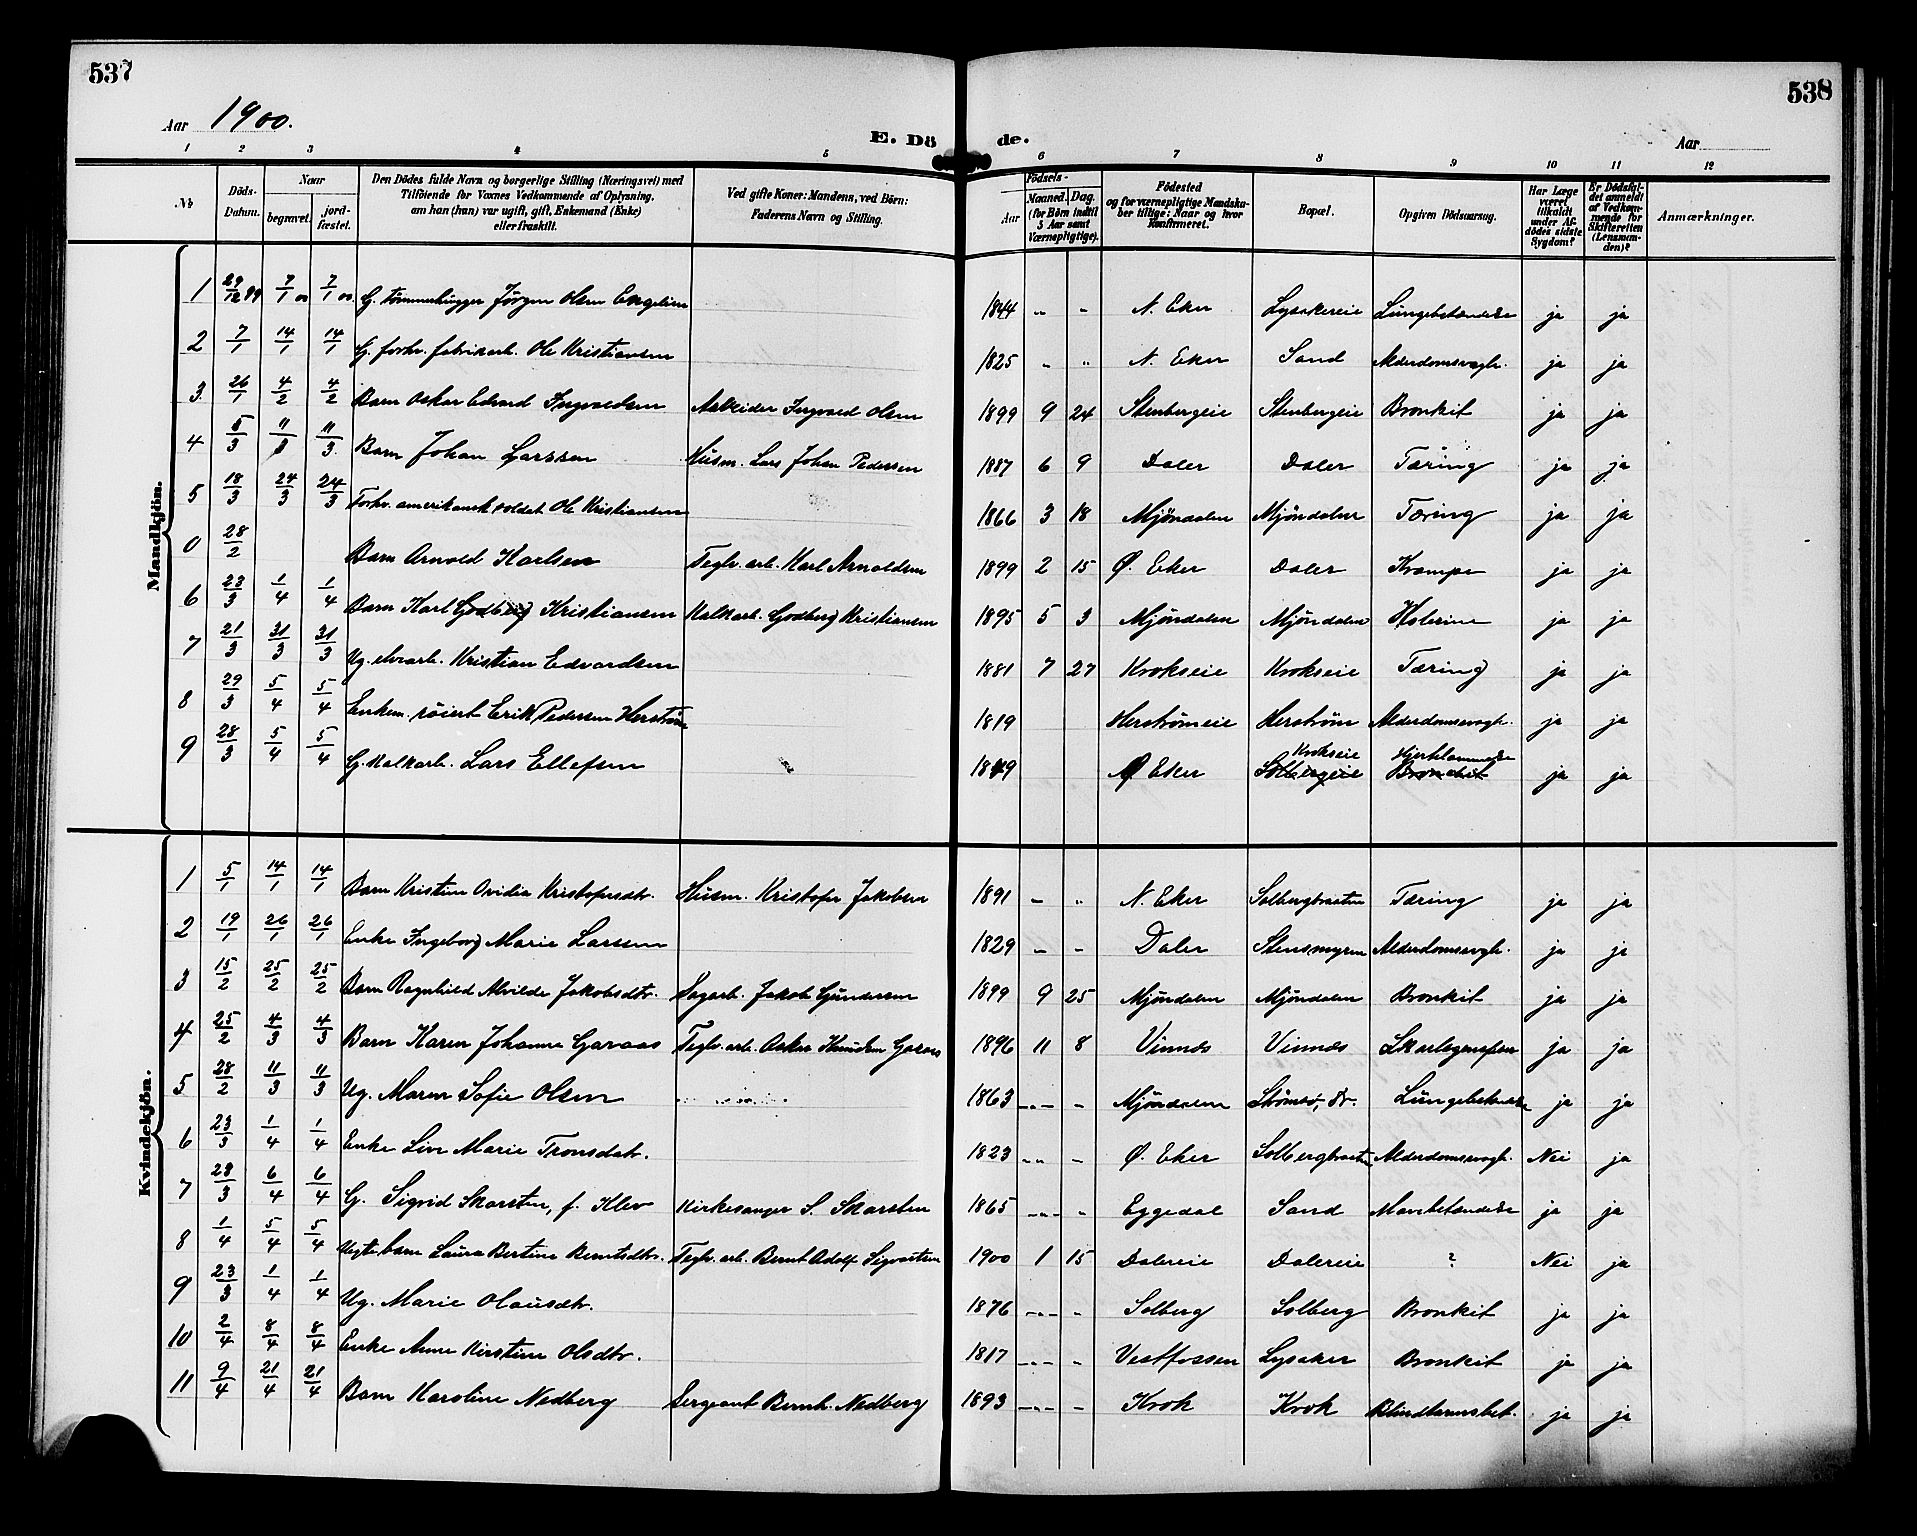 537
538
Aar 1900.
E. Dö de.
Aar
1 2 3 4 5 6 7 8 9 10 11 12
№
Döds-Datum.
Naar
begravet.
jord-fæstet.
Den Dödes fulde Navn og borgerlige Stilling (Næringsvei) med
Tilföiende for Voxnes Vedkommende af Oplysning,
om han (hun) var ugift, gift, Enkemand (Enke)
eller fraskilt.
Ved gifte Koner: Mandens, ved Börn:
Faderens Navn og Stilling.
Födsels-
Aar
Maaned. Dag.
(for Börn indtil
5 Aar samt
Værnepligtige).
Födested
og for værnepligtige Mandska-
ber tillige: Naar og hvor
Konfirmeret.
Bopæl.
Opgiven Dödsaarsag.
Har Læge
været
tilkaldt
under Af-
dödes sidste
Sygdom?
Er Dödsfal-
det anmeldt
af Vedkom-
mende for
Skifteretten
(Lensman-
den)?
Anmærkninger.
Mandkjön.
1 29/12 99 7/1 00 7/1 00. G. tømmerhugger Jørgen Olsen Engelien 1844 " " N. Eker Lysakereie Lungebetændelse ja ja
2 7/1 14/1 14/1 G. forhv. fabrikarb. Ole Kristiansen 1825 " " N. Eker Sand Alderdomssvagh. ja ja
3 26/1 4/2 4/2 Barn Oskar Edvard Ingvaldsen Arbeider Ingvald Olsen 1899 9 24 Stenbergeie Stenbergeie Bronkit ja ja
4 5/3 11/3 11/3 Barn Johan Larssen Husm. Lars Johan Pederssen 1887 6 9 Daler Daler Tæring ja ja
5 18/3 24/3 24/3 Forhv. amerikansk soldat Ole Kristiansen 1866 3 18 Mjøndalen Mjøndalen Tæring ja ja
0 28/2 Barn Arnold Karlsen Teglv. arb. Karl Arnoldsen 1899 2 15 Ø. Eker Daler Krampe ja ja
6 23/3 1/4 1/4 Barn Karl Godberg Kristiansen Kalkarb. Godberg Kristiansen 1895 5 3 Mjøndalen Mjøndalen Kolerine ja ja
7 21/3 31/3 31/3 Ug. elvearb. Kristian Edvardsen 1881 7 27 Krokseie Krokseie Tæring ja ja
8 29/3 5/4 5/4 Enkem. røiert Erik Pedersen Herstrøm 1819 Herstrømeie Herstrøm Alderdomssvagh. ja ja
9 28/3 5/4 5/4 G. Kalkarb. Lars Ellefsen 1849 Ø Eker Solbergeie Krokseie Bronchit Hjertelammelse ja ja
Kvindekjön.
1 5/1 14/1 14/1 Barn Kristine Ovidia Kristofersdtr. Husm. Kristofer Jakobsen 1891 " " N. Eker Solbergbraaten Tæring ja ja
2 19/1 26/1 26/1 Enke Ingeborg Marie Larssen 1829 " " Daler Stensmyren Alderdomssvagh. ja ja
3 15/2 25/2 25/2 Barn Ragnhild Alvilde Jakobsdtr. Sagarb. Jakob Gundersen 1899 9 25 Mjøndalen Mjøndalen Bronkit ja ja
4 25/2 4/3 4/3 Barn Karen Johanne Garaas Teglv. arb. Oskar Knudsen Garaas 1896 11 8 Vinnæs Vinnæs Skarlagensfeber ja ja
5 28/2 11/3 11/3 Ug. Maren Sofie Olsen 1863 " " Mjøndalen Strømsø, Dr. Lungebetændelse ja ja
6 23/3 1/4 1/4 Enke Live Marie Tronsdatr. 1823 " " Ø. Eker Solbergbraaten Alderdomssvagh. Nei ja
7 28/3 6/4 6/4 G. Sigrid Skarsten, f. Klev Kirkesanger S. Skarsten 1865 " " Eggedal Sand Mavebetændelse ja ja
8 1/4 5/4 5/4 Uegte barn Laura Bertine Berntsdtr. Teglv. arb. Bernt Adolf Sigvartsen 1900 1 15 Dalereie Dalereie ? Nei ja
9 23/3 1/4 1/4 Ug. Marie Olausdtr. 1876 " " Solberg Solberg Bronkit ja ja
10 2/4 8/4 8/4 Enke Anne Kirstine Olsdtr. 1817 " " Vestfossen Lysaker Bronkit ja ja
11 9/4 21/4 21/4 Barn Karoline Nedberg Sergeant Bernh. Nedberg 1893 " " Krok Krok Blindtarmsbet. ja ja